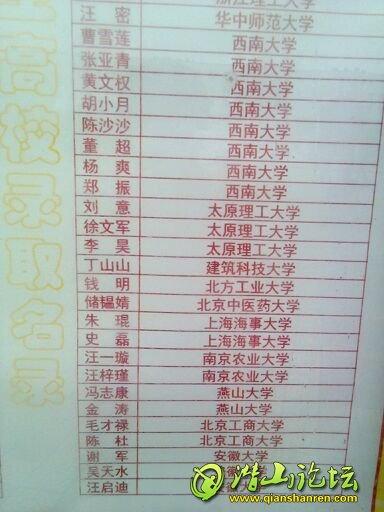 高校录取名录
浙江理工大学
汪密 华中师范大学
曹雪莲 西南大学
张亚青 西南大学
黄文权 西南大学
胡小月 西南大学
陈沙沙 西南大学
董超 西南大学
杨爽 西南大学
郑振 西南大学
刘意 太原理工大学
徐文军 太原理工大学
李昊 太原理工大学
丁山山 建筑科技大学
钱明 北方工业大学
储韫婧 北京中医药大学
朱琨 上海海事大学
史磊 上海海事大学
汪一璇 南京农业大学
汪梓瑾 南京农业大学
冯志康 燕山大学
金涛 燕山大学
毛才禄 北京工商大学
陈杜 北京工商大学
谢军 安徽大学
吴天水
汪启迪
潜山论坛
www.qianshanren.com